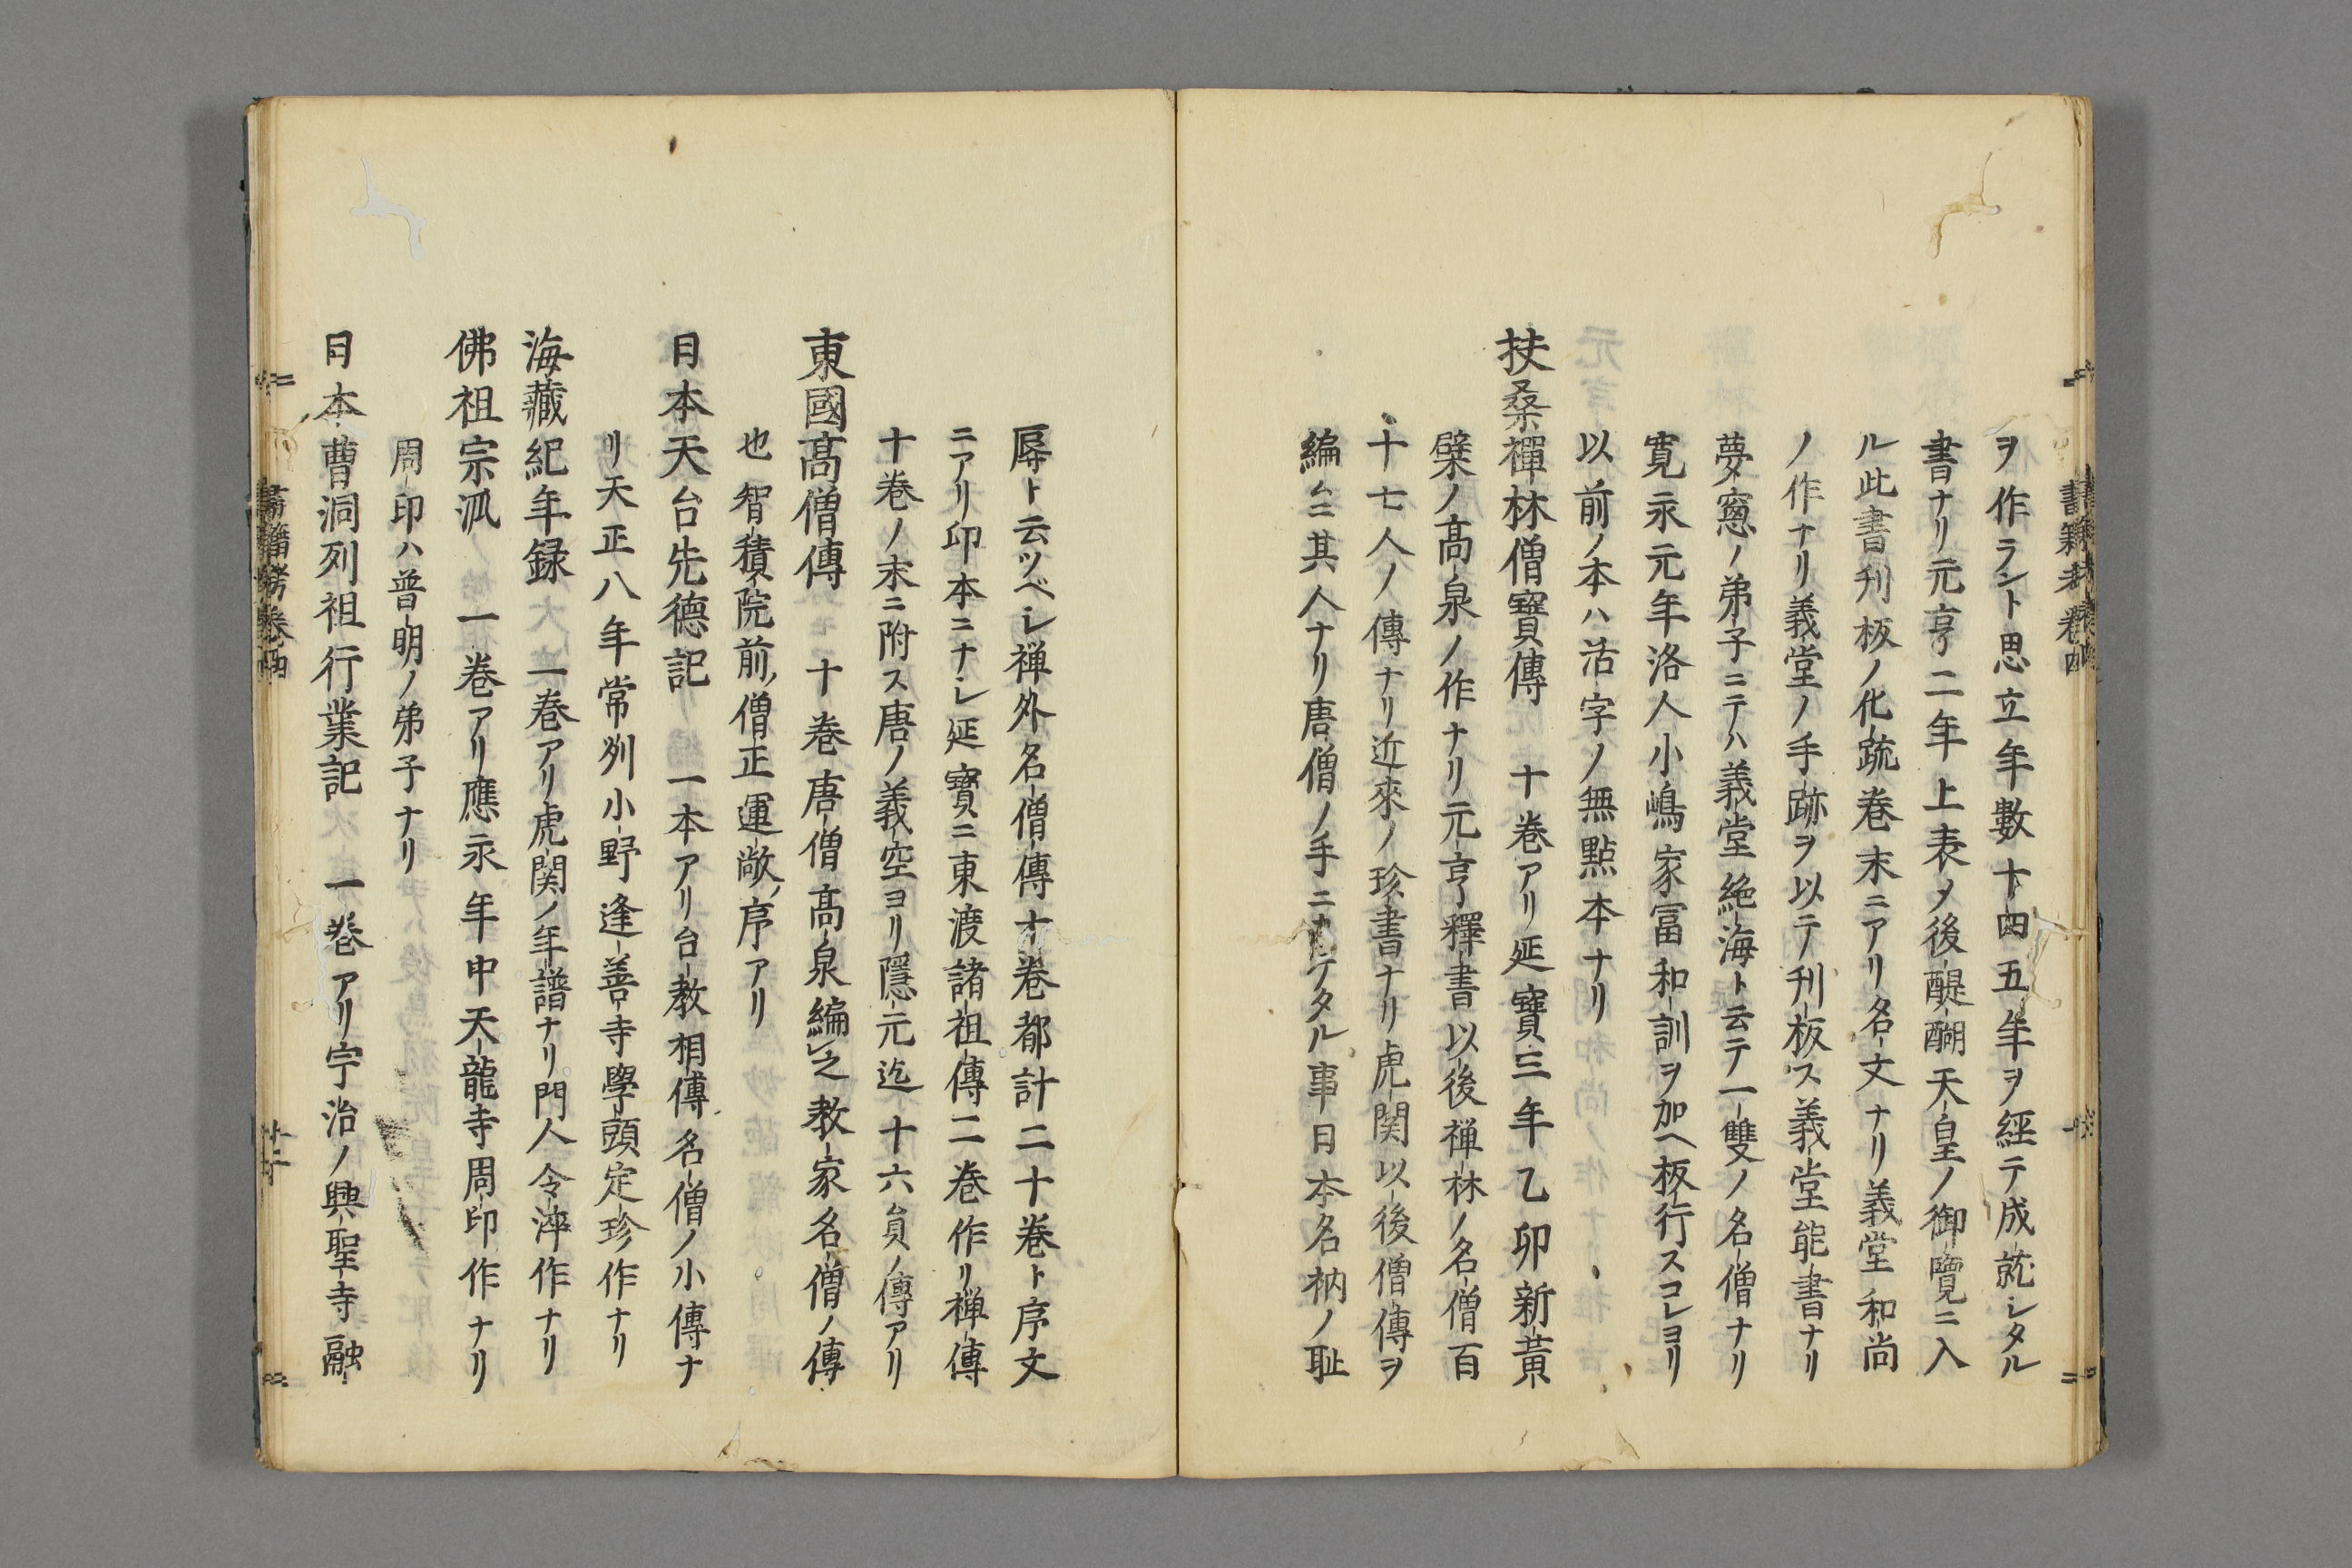 書籍考 卷四
ヲ作ラント思立年數十四五年ヲ經テ成就シタル
書ナリ元亨二年上表メ後醍醐天皇ノ御覽ニ入
ル此書刊板ノ化疏卷末ニアリ名文ナリ義堂和尚
ノ作ナリ義堂ノ手跡ヲ以テ刊板ス義堂能書ナリ
夢窻ノ弟子ニテハ義堂絶海ト云テ一雙ノ名僧ナリ
寛永元年洛人小嶋家冨和訓ヲ加ヘ板行スコレヨリ
以前ノ本ハ活字ノ無點本ナリ
扶桑禪林僧寶傳 十卷アリ延寶三年乙卯新黃
檗ノ髙泉ノ作ナリ元亨釋書以後禅林ノ名僧百
十七人ノ傳ナリ近來ノ珍書ナリ虎関以後僧傳ヲ
編ムニ其人ナリ唐僧ノ手ニカケタル事日本名衲ノ耻
辱ト云ツベシ禅外名僧傳十卷都計二十卷ト序文
ニアリ印本ニナシ延寶ニ東渡諸祖傳二卷作リ禅傳
十卷ノ末ニ附ス唐ノ義空ヨリ隱元迄十六員ノ傳アリ
東國髙僧傳 十卷唐僧髙泉編之教家名僧ノ傳
也智積院前僧正運敞序アリ
日本天台先德記 一本アリ台教相傳名僧ノ小傳ナ
リ天正八年常刕小野逢善寺學頭定珍作ナリ
海藏紀年録 一卷アリ虎関ノ年譜ナリ門人令淬作ナリ
佛祖宗派 一卷アリ應永年中天龍寺周印作ナリ
周印ハ普明ノ弟子ナリ
日本曹洞列祖行業記 一卷アリ宇治ノ興聖寺融
書籍考卷四
廿三